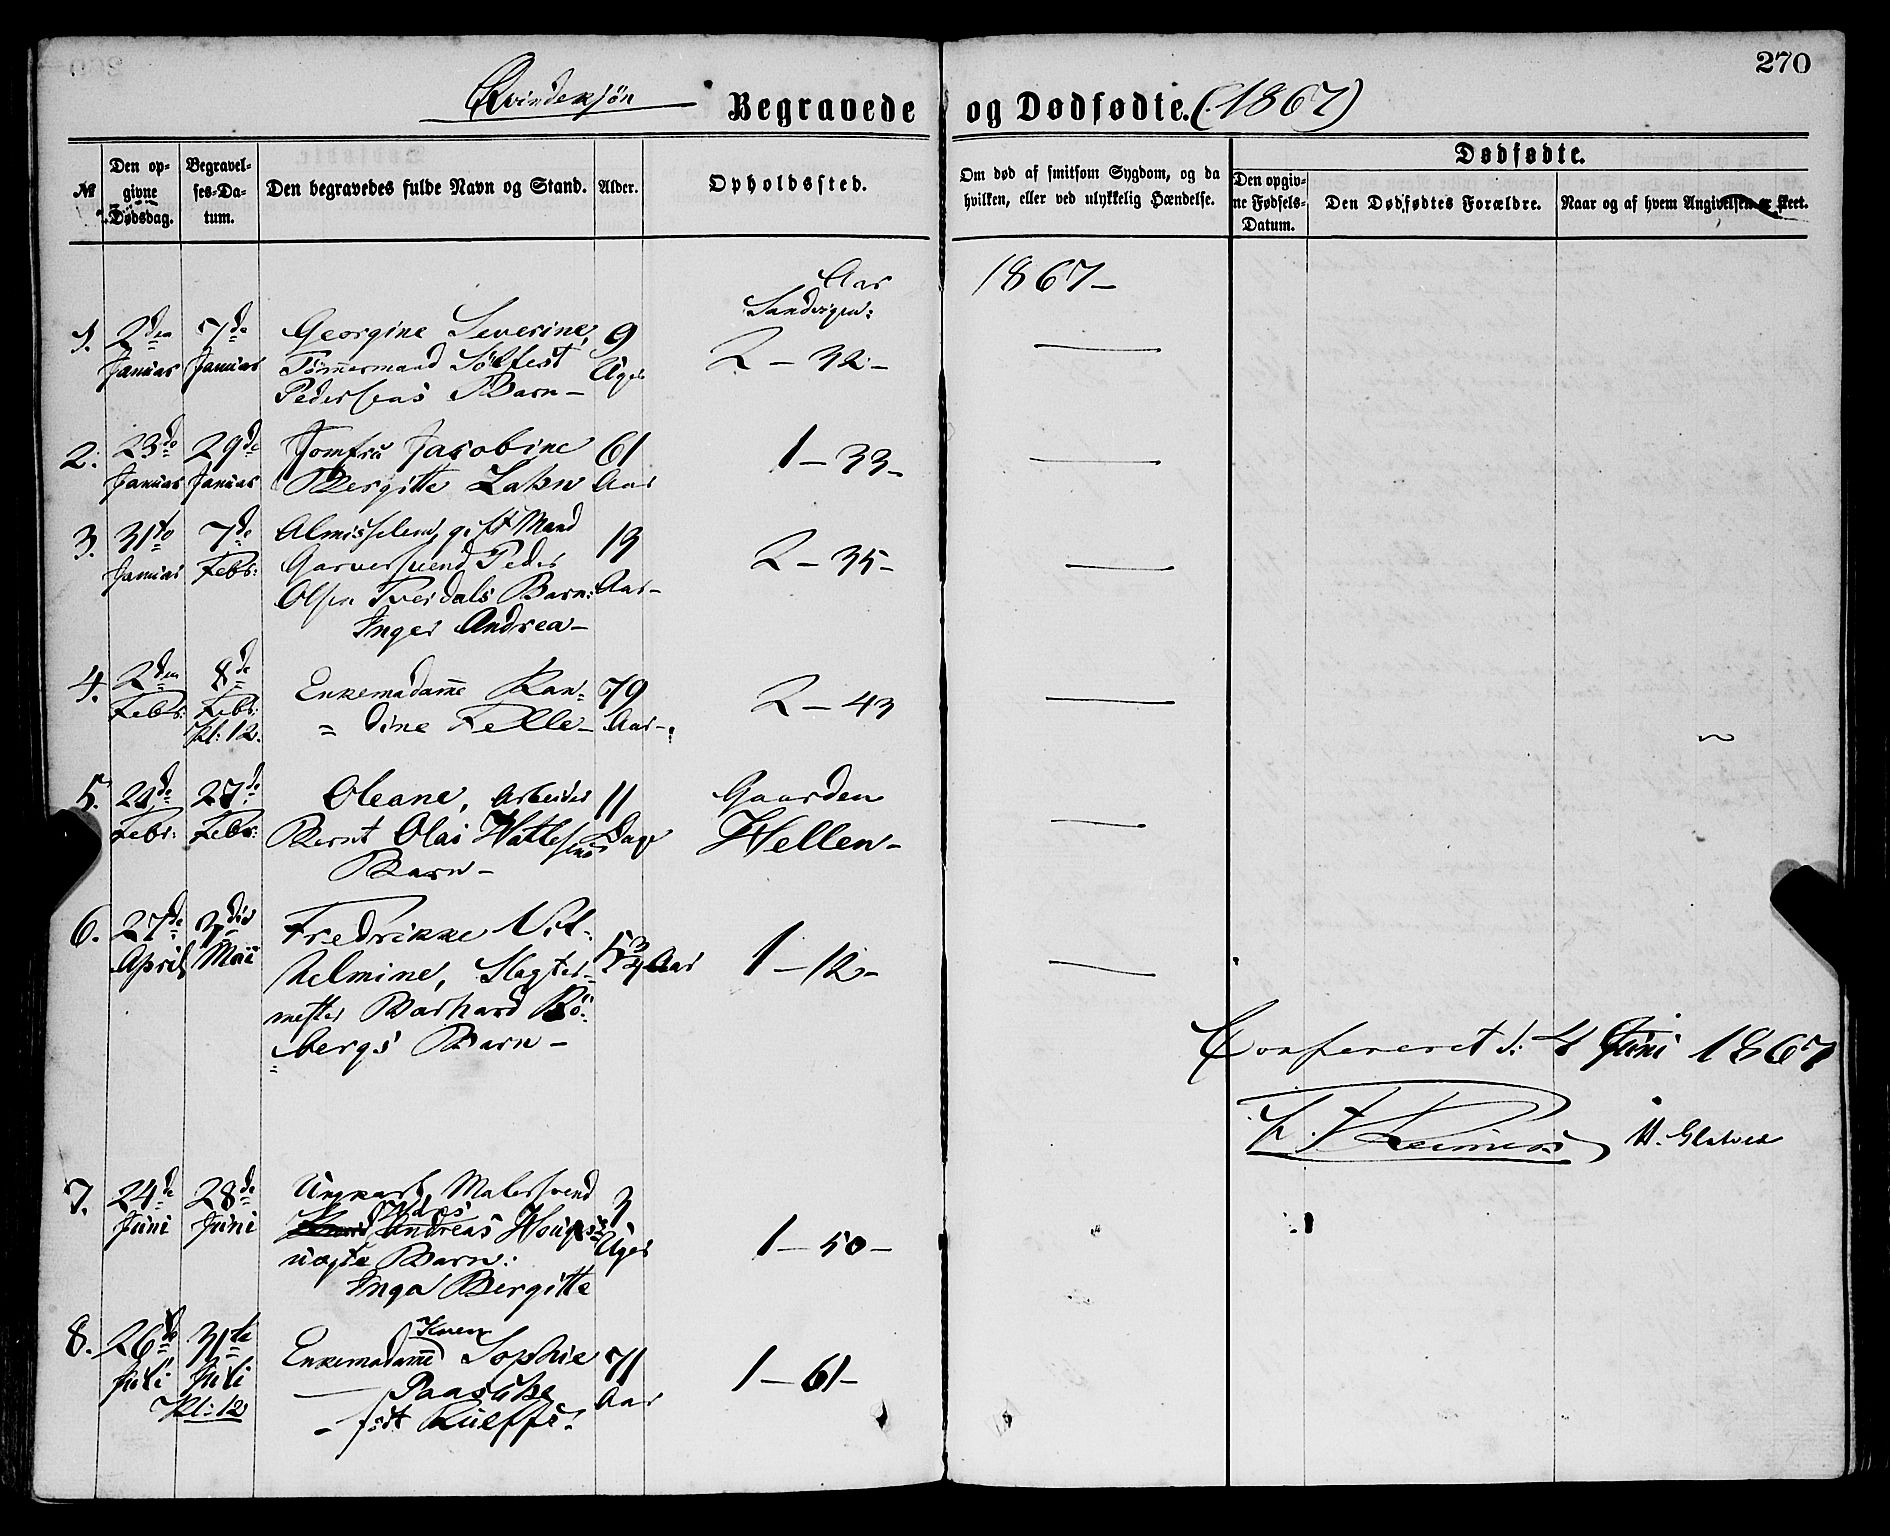 270
Qvindekjön Begravede og Dødfødte. (1867)
№
Den opgivne Dødsdag.
Begravelses-Datum.
Den begravedes fulde Navn og Stand.
Alder.
Opholdssted.
Om død af smitsom Sygdom, og da hvilken, eller ved ulykkelig Hændelse.
Dødfødte.
Den opgivne Fødsels-Datum.
Den Dødfødtes Forældre.
Naar og af hvem Angivelsen er skeet.
Aar 1867-
1. 2den Januar 7de Januar
Georgine Severine,
Tømmermand Sölfest
Pedersens Barn-
9 Uger
Sandvigen:
2-32-
2. 23de Januar 29de Januar
Jomfru Jacobine
Bergitte Lahn
61 Aar
1-33-
3. 31te Januar 7de Febr:
Almisselem, gift Mand
Garversvend Peder
Olsen Tverdals Barn:
Inger Andrea-
13 Aar-
2-35-
4. 2den Febr: 8de Febr: Kl: 12.
Enkemadame Ran-
= dine Felle-
79 Aar-
2-43
5. 21de Febr: 27de Febr:
Oleane, Arbeider
Bernt Olai
Barn-
11 Dage
Gaarden
Hellen-
6. 27de April 3die Mai
Fredrikke Vil-
helmine, Slagter-
mester
bergs Barn-
5 3/4 Aar
1-12-
Confereret d: 4 Juni 1867
7. 24de Juni 28de Juni
Ungkarl, Malersvend
Andreas
uægte Barn:
Inga Bergitte
3 Uger
1-50-
8. 26de Juli 31te Juli Kl: 12
Enkemadame Sophie
Paasche
- födt
71 Aar
1-61-